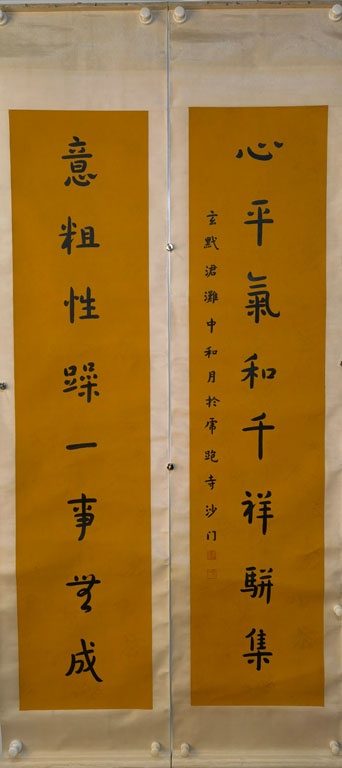 心平氣和千祥駢集
玄默涒灘中和月於虎跑寺沙门
意粗性躁一事無成